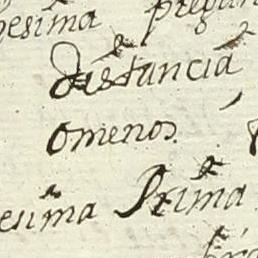 esima pregun
distancia
omenos
esima Prima